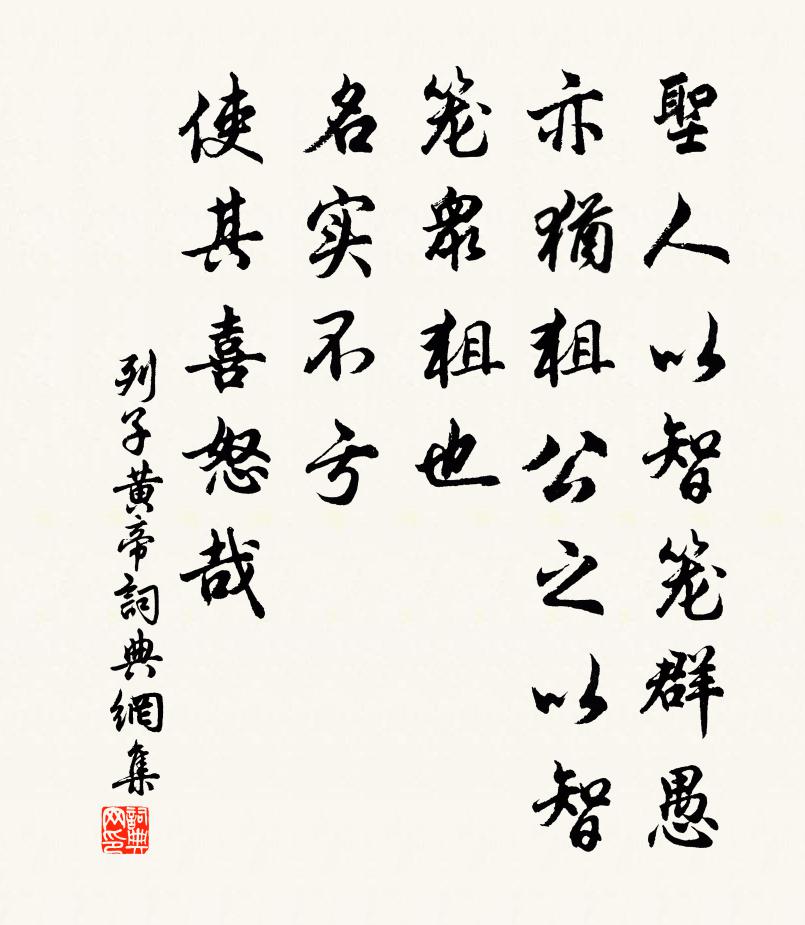 聖人以智笼群愚
亦猶狙公之以智
笼眾狙也
名实不亏
使其喜怒哉
列子黄帝詞典網集
詞典网印